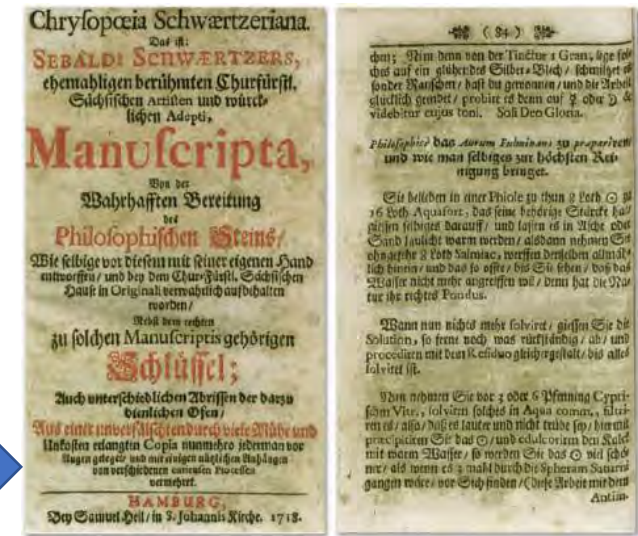 Chrysopœia Schwærtzeriana.
Das ist:
SEBALDI SCHWÆRTZERS,
ehemahligen berühmten Churfürstl.
Sächsischen Artisten und würck-
lichen Adepti,
Manuscripta,
Von der
Wahrhafften Bereitung
des
Philosophischen Steins/
Wie selbige vor diesem mit seiner eigenen Hand
entworffen/ und bey dem Chur-Fürstl. Sächsischen
Hause in Originali verwahrlich aufbehalten
worden/
Nebst dem rechten
zu solchen Manuscriptis gehörigen
Schlüssel;
Auch unterschiedlichen Abrissen der darzu
dienlichen Ofen/
Aus einer unverfälschten durch viele Mühe und
Unkosten erlangten Copia nunmehro jederman vor
Augen geleget/ und mit einigen nützlichen Anhängen
von verschiedenen curieusen Processen
vermehret.
HAMBURG,
Bey Samuel Heil/ in S. Johannis Kirche. 1718.
( 84 )
chen; Nim denn von der Tinctur 1 Gran, lege sol-
ches auf ein glühendes Silber-Blech/ schmiltzet es
sonder Rauschen/ hast du gewonnen/ und die Arbeit
glücklich geendet/ probire es denn auf ☿ oder ☽ &
videbitur cujus toni. Soli Deo Gloria.
Philosophice das Aurum Fulminans zu præpariren
und wie man selbiges zur höchsten Rei-
nigung bringet.
Sie belieben in einer Phiole zu thun 2 Loth ☉ zu
16 Loth Aquafort, das seine behörige Stärcke hat/
giessen selbiges darauff/ und lassen es in Asche oder
Sand laulicht warm werden/ alsdann nehmen Sie
ohngefehr 8 Loth Salmiac, werffen denselben allmäh-
lich hinein/ und das so offte/ bis Sie sehen/ daß das
Wasser nicht mehr angreiffen wil/ denn hat die Na-
tur ihr rechtes Pondus.
Wann nun nichts mehr solviret/ giessen Sie die
Solution, so ferne noch was rückständig/ ab/ und
procediren mit dem Residuo gleichergestalt/ bis alles
solviret ist.
Nun nehmen Sie vor 3 oder 6 Pfenning Cypri-
schen Vitr., solviren solches in Aqua comm., filtri-
ren es/ also/ daß es lauter und nicht trübe sey/ hiermit
præcipitiren Sie das ☉/ und edulcoriren den Kalck
mit warm Wasser/ so werden Sie das ☉ viel schö-
ner/ als wenn es 3 mahl durch die Spheram Saturni
gangen wäre/ vor sich finden/ (diese Arbeit mit dem
Antim-